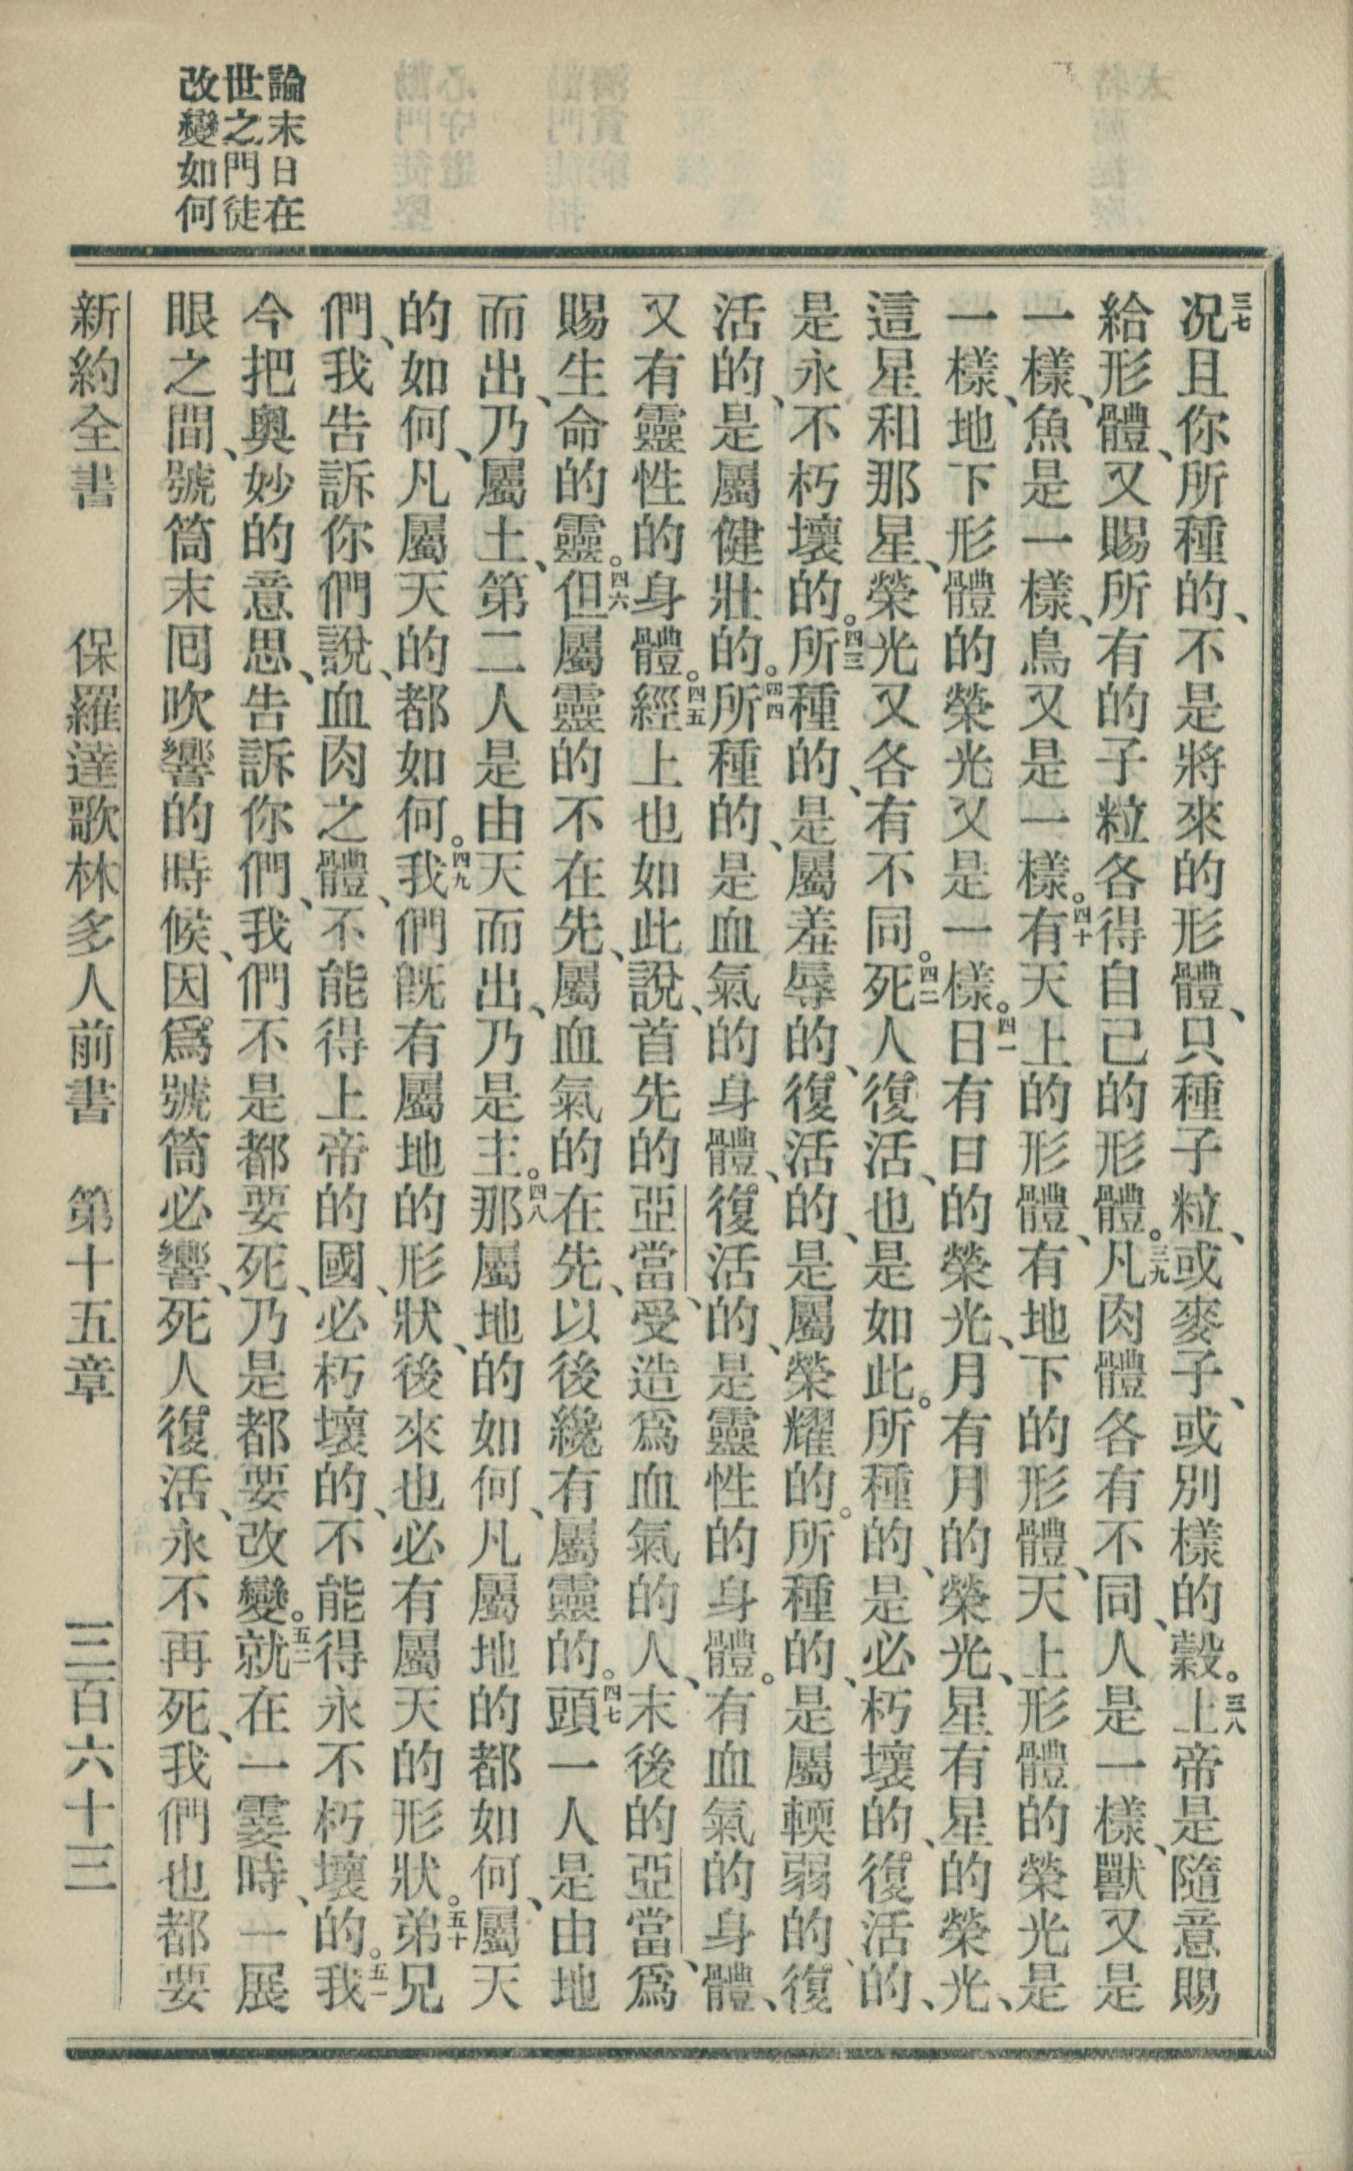 論末日在
世之門徒
改變如何
三七况且你所種的、不是將來的形體、只種子粒、或麥子、或別樣的穀。三八上帝是隨意賜
給形體、又賜所有的子粒各得自己的形體。三九凡肉體各有不同、人是一樣、獸又是
一樣、魚是一樣、鳥又是一樣。四十有天上的形體、有地下的形體、天上形體的榮光是
一樣、地下形體的榮光又是一樣。四一日有日的榮光、月有月的榮光、星有星的榮光、
這星和那星、榮光又各有不同。四二死人復活、也是如此。所種的、是必朽壞的、復活的、
是永不朽壞的。四三所種的、是屬羞辱的、復活的、是屬榮耀的。所種的、是屬輭弱的、復
活的、是屬健壯的。四四所種的、是血氣的身體、復活的、是靈性的身體。有血氣的身體、
又有靈性的身體。四五經上也如此說、首先的亞當、受造爲血氣的人、末後的亞當、爲
賜生命的靈。四六但屬靈的不在先、屬血氣的在先、以後纔有屬靈的。四七頭一人是由地
而出、乃屬土、第二人是由天而出、乃是主。四八那屬地的如何、凡屬地的都如何、屬天
的如何、凡屬天的都如何。四九我們旣有屬地的形狀、後來也必有屬天的形狀。五十弟兄
們、我告訴你們說、血肉之體、不能得上帝的國、必朽壞的、不能得永不朽壞的。五一我
今把奧妙的意思、告訴你們、我們不是都要死、乃是都要改變。五二就在一霎時、一展
眼之間、號筒末囘吹響的時候、因爲號筒必響、死人復活、永不再死、我們也都要
新約全書 保羅達歌林多人前書 第十五章 三百六十三